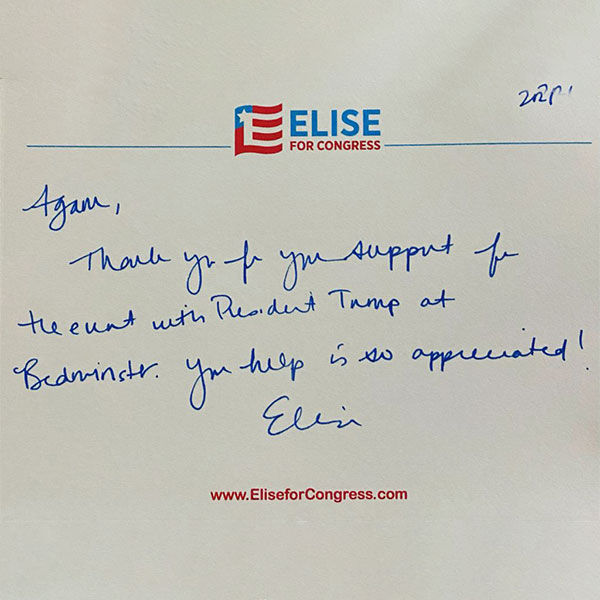 ELISE
FOR CONGRESS
Agam,
Thank you for your support for
the event with President Trump at
Bedminster. Your help is so appreciated!
Elise
www.EliseforCongress.com